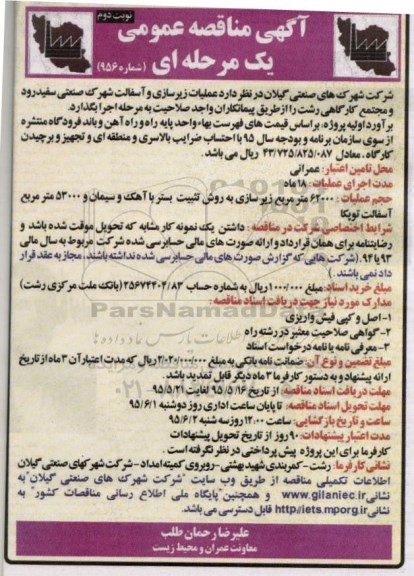 نوبت دوم
آگهی مناقصه عمومی
یک مرحله ای (شماره ۹۵۶)
شرکت شهرک های صنعتی گیلان در نظر دارد عملیات زیرسازی و آسفالت شهرک صنعتی سفیدرود
و مجتمع کارگاهی رشت را از طریق پیمانکاران واجد صلاحیت به مرحله اجرا بگذارد.
برآورد اولیه پروژه، براساس قیمت های فهرست بهاء واحد پایه راه و راه آهن و باند فرودگاه منتشره
از سوی سازمان برنامه و بودجه سال ۹۵ با احتساب ضرایب بالاسری و منطقه ای و تجهیز و برچیدن
کارگاه، معادل ۴۳/۷۲۵/۸۲۵/۰۸۷ ریال می باشد.
محل تامین اعتبار: عمرانی
مدت اجرای عملیات: ۱۸ ماه
حجم عملیات: ۶۲۰۰۰ متر مربع زیرسازی به روش تثبیت بستر با آهک و سیمان و ۵۳۰۰۰ متر مربع
آسفالت توپکا
شرایط اختصاصی شرکت در مناقصه: داشتن یک نمونه کار مشابه که تحویل موقت شده باشد و
رضایتنامه برای همان قرارداد و ارائه صورت های مالی حسابرسی شده شرکت مربوط به سال مالی
۹۳ یا ۹۴. (شرکت هایی که گزارش صورت های مالی حسابرسی شده نداشته باشند، مجاز به عقد قرار
داد نمی باشند.)
مبلغ خرید اسناد: مبلغ ۱/۰۰۰/۰۰۰ ریال به شماره حساب ۲۵۶۷۴۴۰۴/۸۳ (بانک ملت مرکزی رشت)
مدارک مورد نیاز جهت دریافت اسناد مناقصه:
۱- اصل و کپی فیش واریزی
۲- گواهی صلاحیت معتبر در رشته راه
۳- معرفی نامه یا نامه درخواست اسناد
مبلغ تضمین و نوع آن: ضمانت نامه بانکی به مبلغ ۲/۰۲۰/۰۰۰/۰۰۰ ریال که مدت اعتبار آن ۳ ماه از تاریخ
ارائه پیشنهاد و به دستور کارفرما ۳ ماه دیگر قابل تمدید باشد.
مهلت دریافت اسناد مناقصه: از تاریخ ۹۵/۵/۱۶ لغایت ۹۵/۵/۲۱
مهلت تحویل اسناد مناقصه: تا پایان ساعت اداری روز دوشنبه ۹۵/۶/۱
ساعت و تاریخ بازگشایی: ساعت ۱۲:۰۰ روز سه شنبه ۹۵/۶/۲
مدت اعتبار پیشنهادات: ۹۰ روز از تاریخ تحویل پیشنهادات
کارفرما برای این پروژه پیش پرداختی در نظر نگرفته است.
نشانی کارفرما: رشت- کمربندی شهید بهشتی- روبروی کمیته امداد- شرکت شهرکهای صنعتی گیلان
اطلاعات تکمیلی مناقصه از طریق وب سایت "شرکت شهرک های صنعتی گیلان" به
نشانی www.gilaniec.ir و همچنین "پایگاه ملی اطلاع رسانی مناقصات کشور" به
نشانی http://iets.mporg.ir قابل دسترسی می باشد.
علیرضا رحمان طلب
معاونت عمران و محیط زیست
ParsNamadData